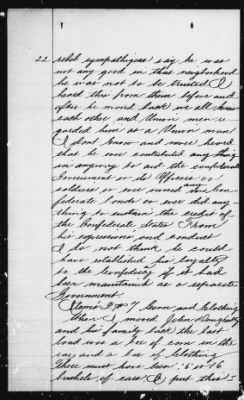 22 rebel sympathizers say he was
not any good in that neighborhood
he was not to be trusted. I
heard this from them before and
after he moved back we all knew
each other and Union men re
garded him as a Union man
I dont know and never heard
that he ever contributed any thing
in money to aid the confederate
Government or its officers or
soldiers or ever owned any Con
federate bonds or ever did any
thing to sustain the credit of
the Confederate States From
his expressions and conduct
I do not think he could
have established his loyalty
to the Confederacy if it had
been maintained as a separate
Government
Items 3 & 7 Corn and Clothing
When I moved John Dougherty
and his family back the last
load was a box of corn in the
ear, and a box of clothing
There must have been 15 or 16
bushels of ears. I put this